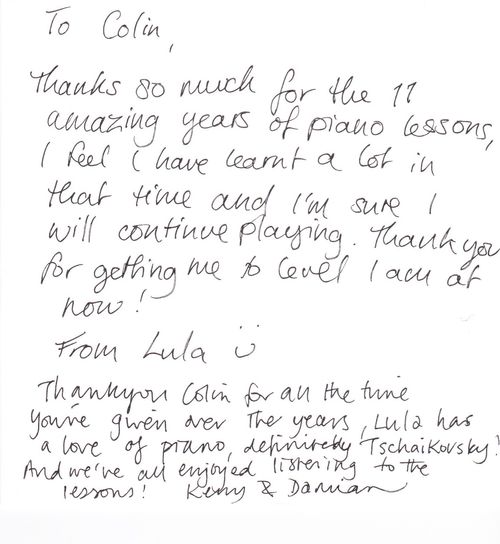 To Colin,
Thanks so much for the 11
amazing years of piano lessons,
I feel I have learnt a lot in
that time and I'm sure I
will continue playing. Thank you
for getting me to level I am at
now!
From Lula ☺
Thankyou Colin for all the time
you've given over The years, Lula has
a love of piano, definitely Tschaikovsky!
And we've all enjoyed listening to the
lessons! Kerry & Damian